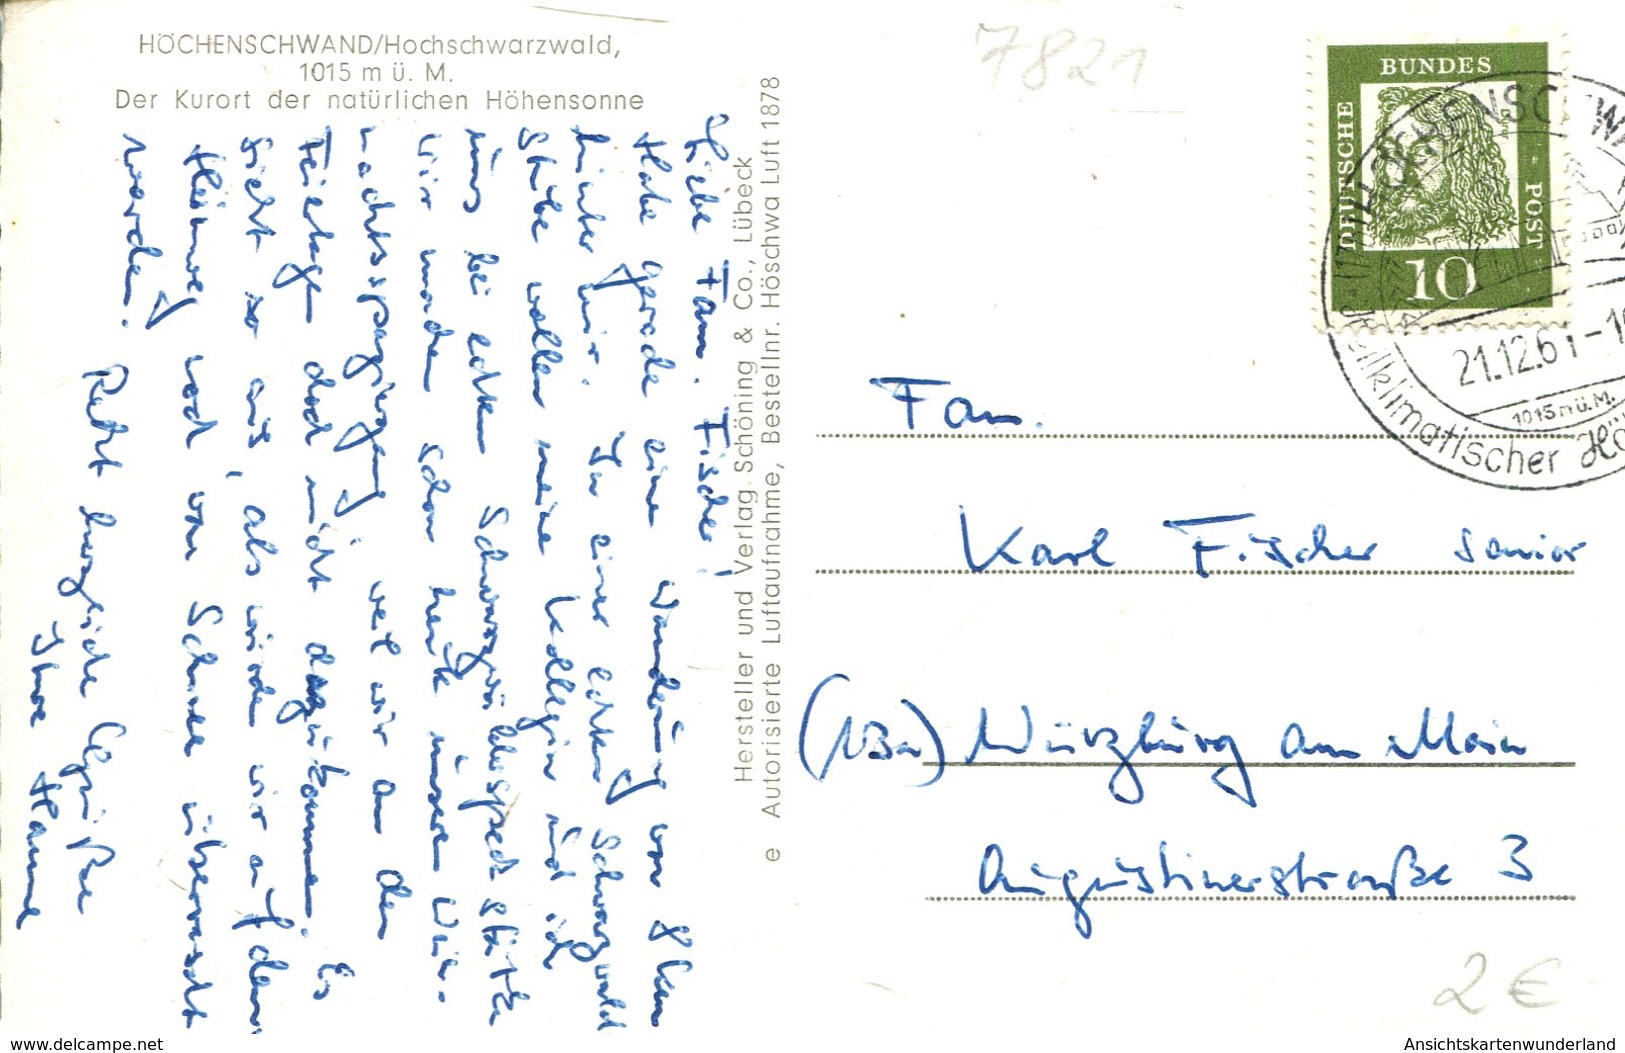 HÖCHENSCHWAND/Hochschwarzwald,
1015 m ü. M.
Der Kurort der natürlichen Höhensonne
Liebe Fam. Fischer!
Habe gerade eine Wanderung von 8 km
hinter mir. In einer echten Schwarzwald
Stube wollen meine Kollegin und ich
uns bei echten Schwarzwälderspeck stärken
Wir machen schon heute unsere Weih-
nachtsspaziergang, weil wir an den
Feiertagen doch nicht dazukommen. Es
sieht so aus, als würden wir auf dem
Heimweg noch von Schnee überrascht
werden. Recht herzliche Grüße
Ihre Hanne
Hersteller und Verlag Schöning & Co., Lübeck
e Autorisierte Luftaufnahme, Bestellnr. Höschwa Luft 1878
7821
DEUTSCHE
BUNDES
POST
Dürer
10
HÖCHENSCHWA
21.12.61-1
1015 m ü. M.
Heilklimatischer Hö
Fam.
Karl Fischer senior
Würzburg am Main
Augustinerstraße 3
2 €
www.delcampe.net
Ansichtskartenwunderland